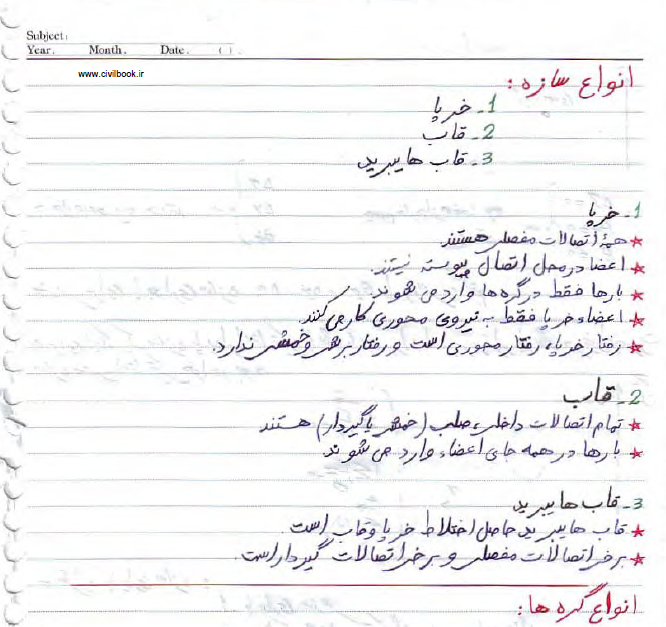 Subject:
Year. Month. Date. ( ).
www.civilbook.ir
انواع سازه:
1- خرپا
2- قاب
3- قاب هایبرید
1- خرپا
★ همهٔ اتصالات مفصلی هستند
★ اعضا در محل اتصال پیوسته نیستند.
★ بارها فقط در گره ها وارد می شوند
★ اعضاء خرپا فقط به نیروی محوری کار می کنند.
★ رفتار خرپا، رفتار محوری است و رفتار برشی و خمشی ندارد.
2- قاب
★ تمام اتصالات داخلی، صلب (خمشی یا گیردار) هستند
★ بارها در همه جای اعضاء وارد می شوند
3- قاب هایبرید
★ قاب هایبرید حاصل اختلاط خرپا و قاب است.
★ برخی اتصالات مفصلی و برخی اتصالات گیردار است.
انواع گره ها: